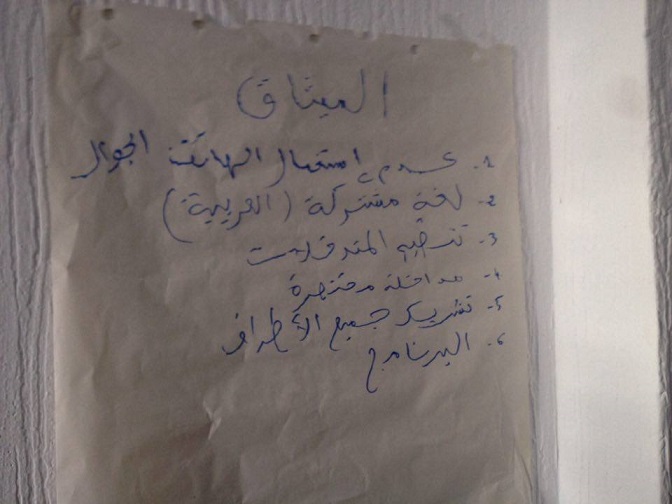 الميثاق
1- عدم إستعمال الهاتف الجوال
2- لغة مشتركة (العربية)
3- تنظيم المتدخلات
4- مداخلة مختصرة
5- تشريك جميع الأطراف
6- البرنامج